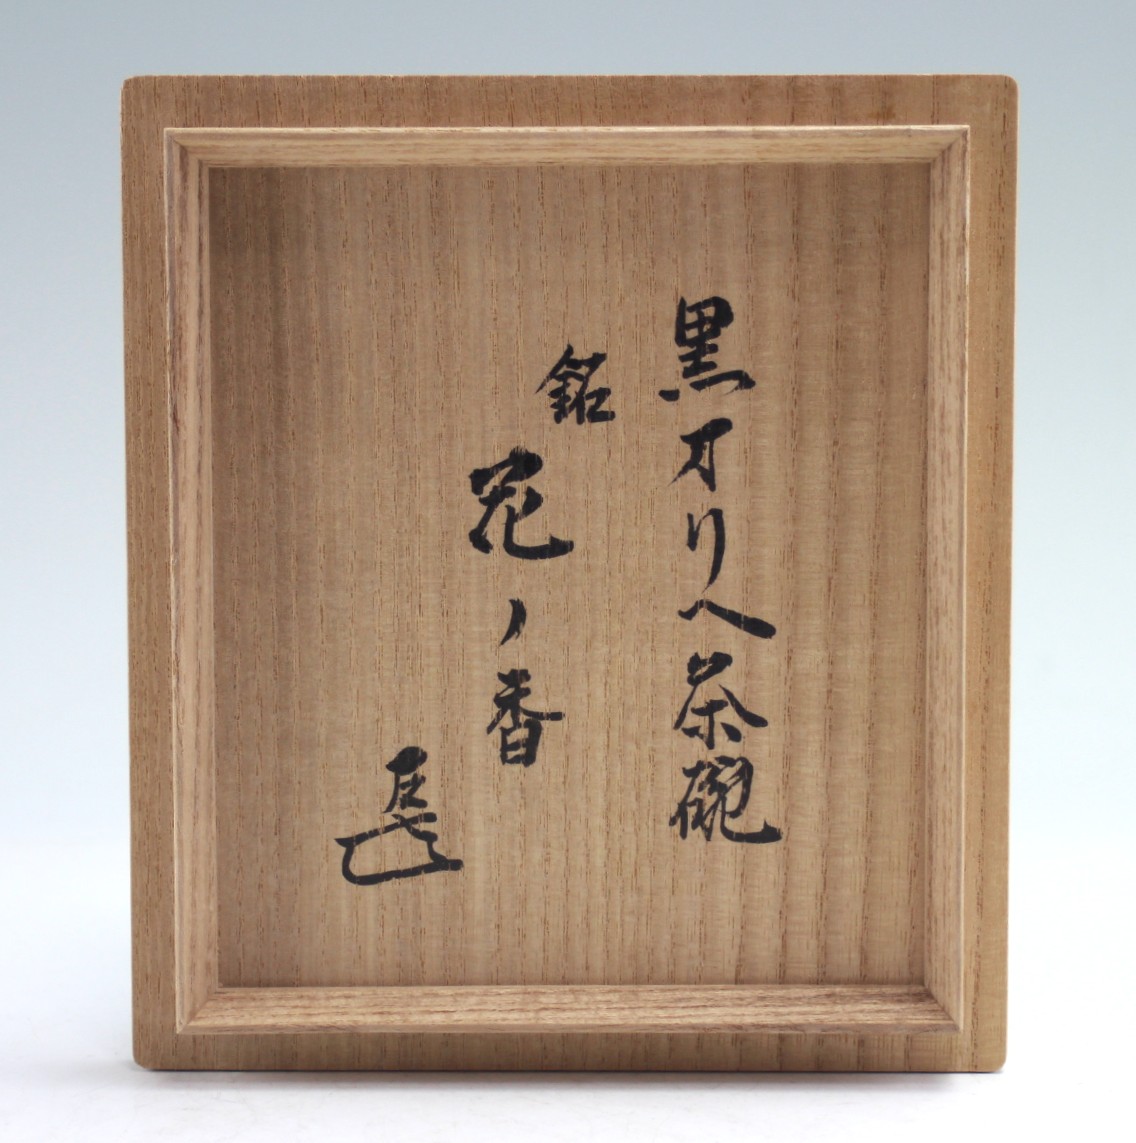 黒オリヘ茶碗
銘
花ノ香